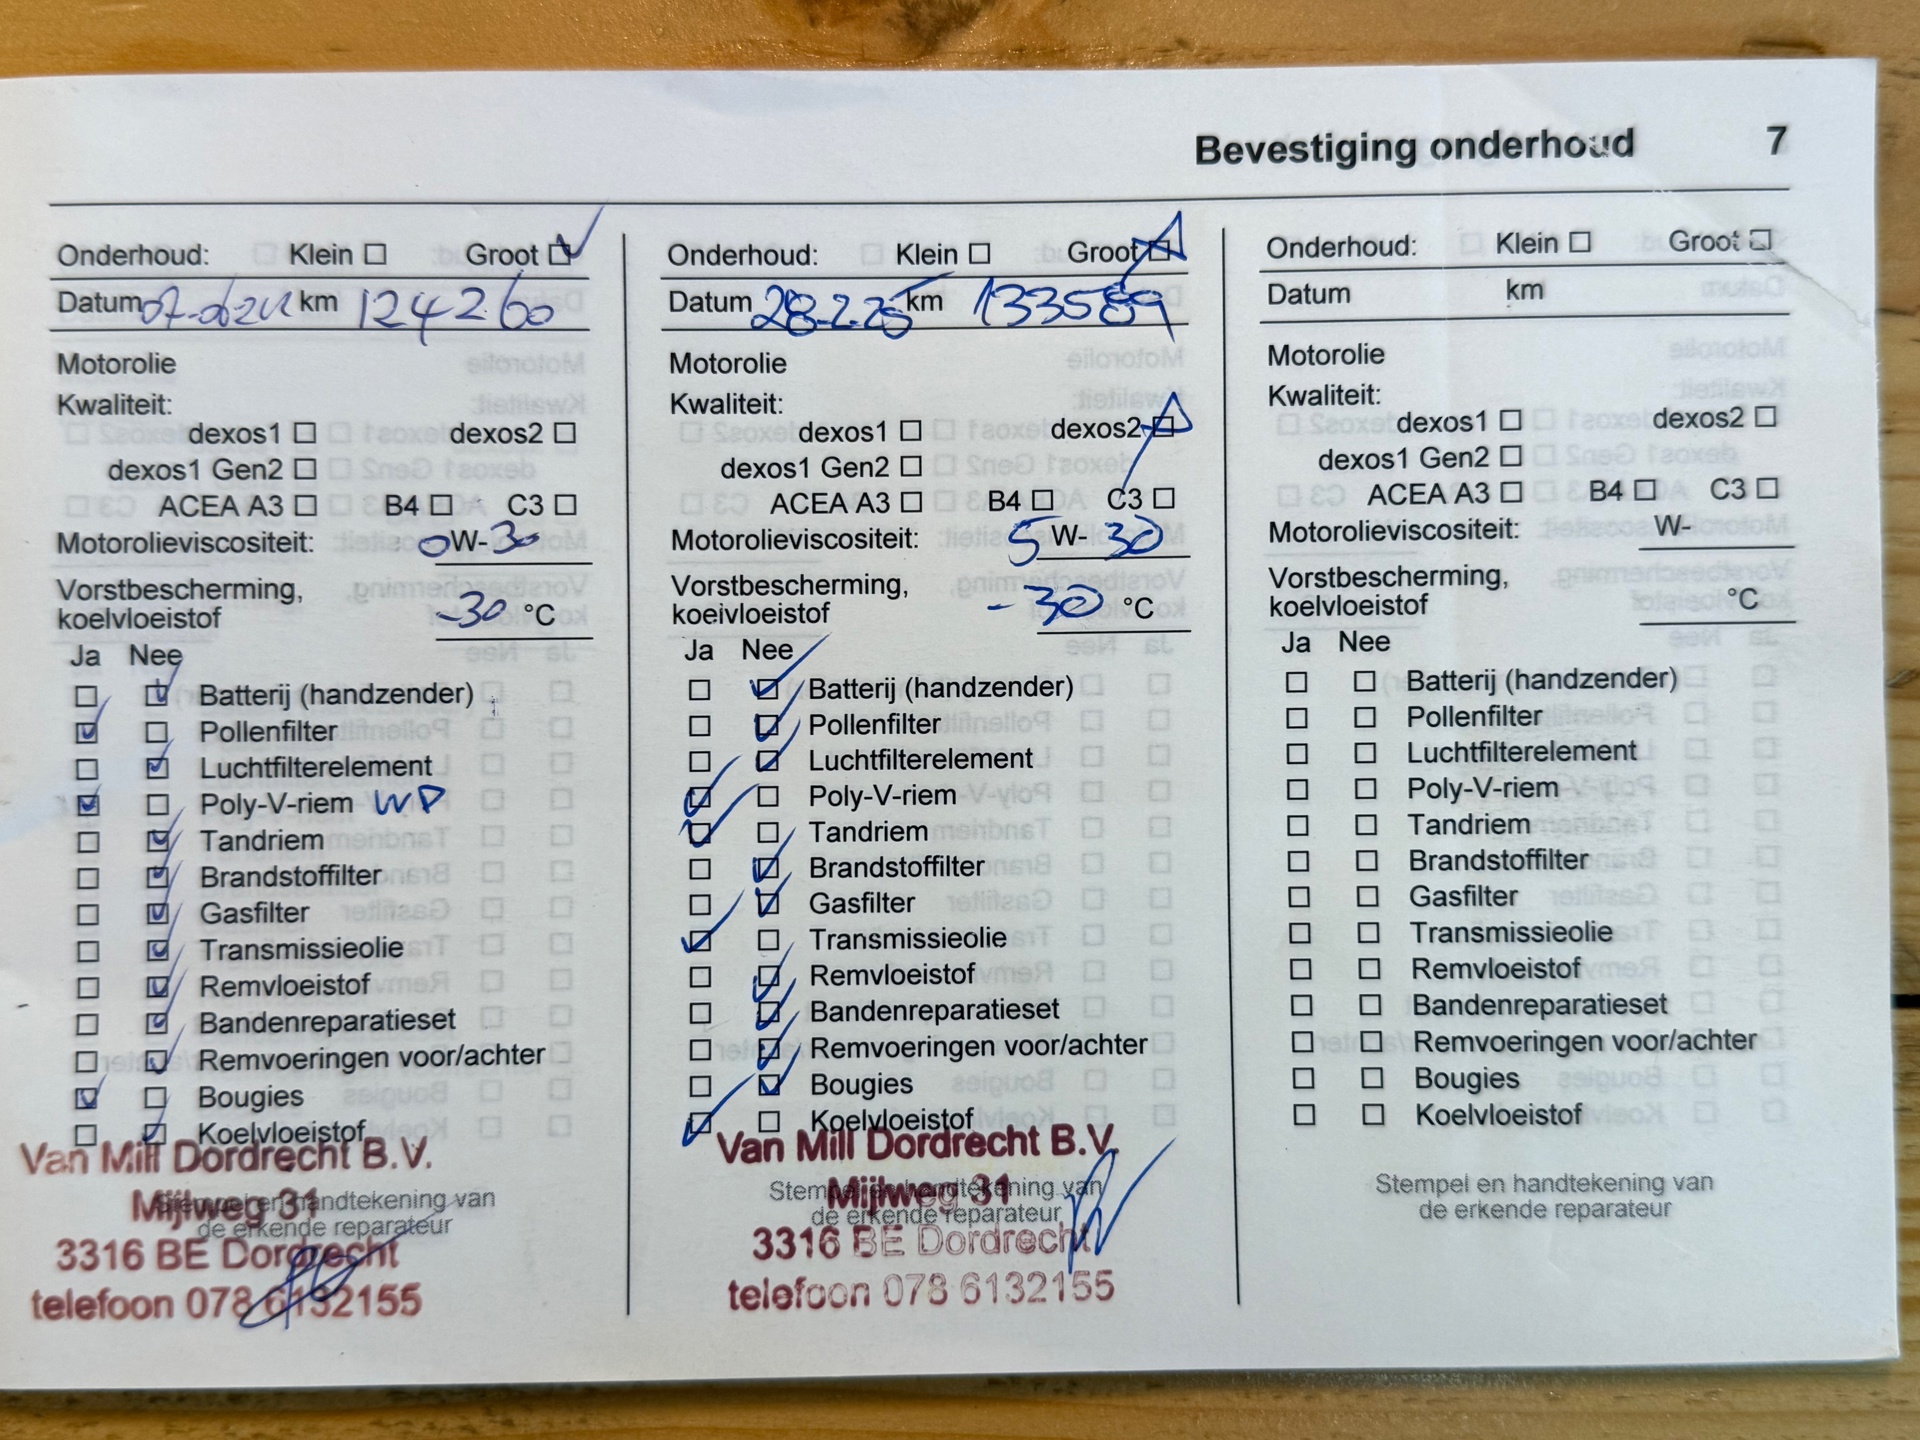 Bevestiging onderhoud 7
Onderhoud: Klein Groot
Datum km 124260
Motorolie
Kwaliteit:
dexos1 dexos2
dexos1 Gen2
ACEA A3 B4 C3
Motorolieviscositeit: 0W-30
Vorstbescherming,
koelvloeistof -30 °C
Ja Nee
Batterij (handzender)
Pollenfilter
Luchtfilterelement
Poly-V-riem WP
Tandriem
Brandstoffilter
Gasfilter
Transmissieolie
Remvloeistof
Bandenreparatieset
Remvoeringen voor/achter
Bougies
Koelvloeistof
Van Mill Dordrecht B.V.
Stempel en handtekening van
Mijlweg 31
de erkende reparateur
3316 BE Dordrecht
telefoon 078 6132155
Onderhoud: Klein Groot
Datum 28-2-25 km 133589
Motorolie
Kwaliteit:
dexos1 dexos2
dexos1 Gen2
ACEA A3 B4 C3
Motorolieviscositeit: 5W-30
Vorstbescherming,
koelvloeistof -30 °C
Ja Nee
Batterij (handzender)
Pollenfilter
Luchtfilterelement
Poly-V-riem
Tandriem
Brandstoffilter
Gasfilter
Transmissieolie
Remvloeistof
Bandenreparatieset
Remvoeringen voor/achter
Bougies
Koelvloeistof
Van Mill Dordrecht B.V.
Stempel en handtekening van
Mijlweg 31
de erkende reparateur
3316 BE Dordrecht
telefoon 078 6132155
Onderhoud: Klein Groot
Datum km
Motorolie
Kwaliteit:
dexos1 dexos2
dexos1 Gen2
ACEA A3 B4 C3
Motorolieviscositeit: W-
Vorstbescherming,
koelvloeistof °C
Ja Nee
Batterij (handzender)
Pollenfilter
Luchtfilterelement
Poly-V-riem
Tandriem
Brandstoffilter
Gasfilter
Transmissieolie
Remvloeistof
Bandenreparatieset
Remvoeringen voor/achter
Bougies
Koelvloeistof
Stempel en handtekening van
de erkende reparateur